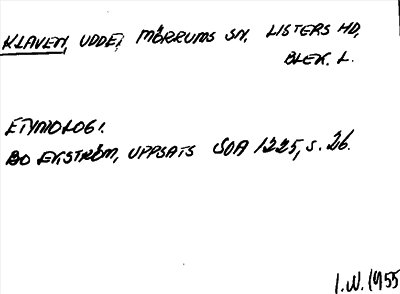 KLAVEN, UDDE, MÖRRUMS SN, LISTERS HD,
BLEK. L.
ETYMOLOGI.
BO EKSTRÖM, UPPSATS SOA 1225, S. 26.
I.N. 1955